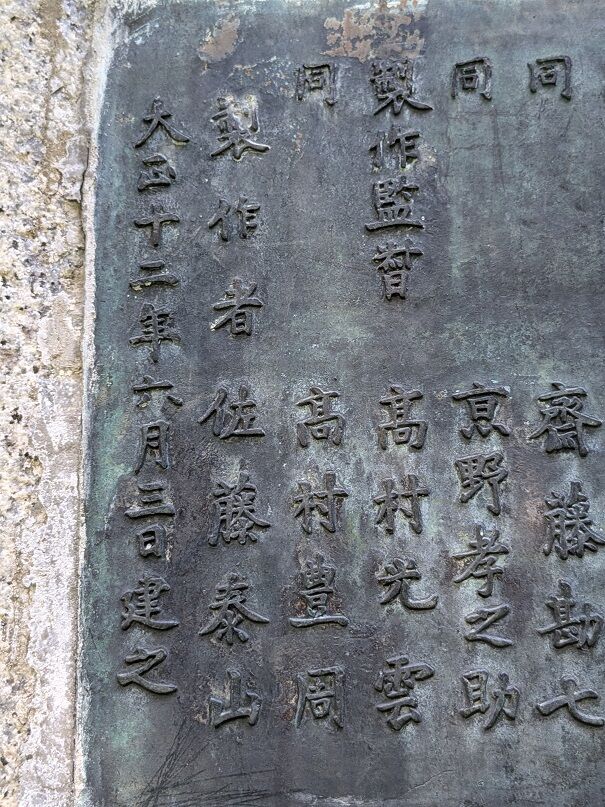 同 齋藤勘七
同 京野孝之助
製作監督 髙村光雲
同 髙村豊周
製作者 佐藤泰山
大正十二年六月三日建之